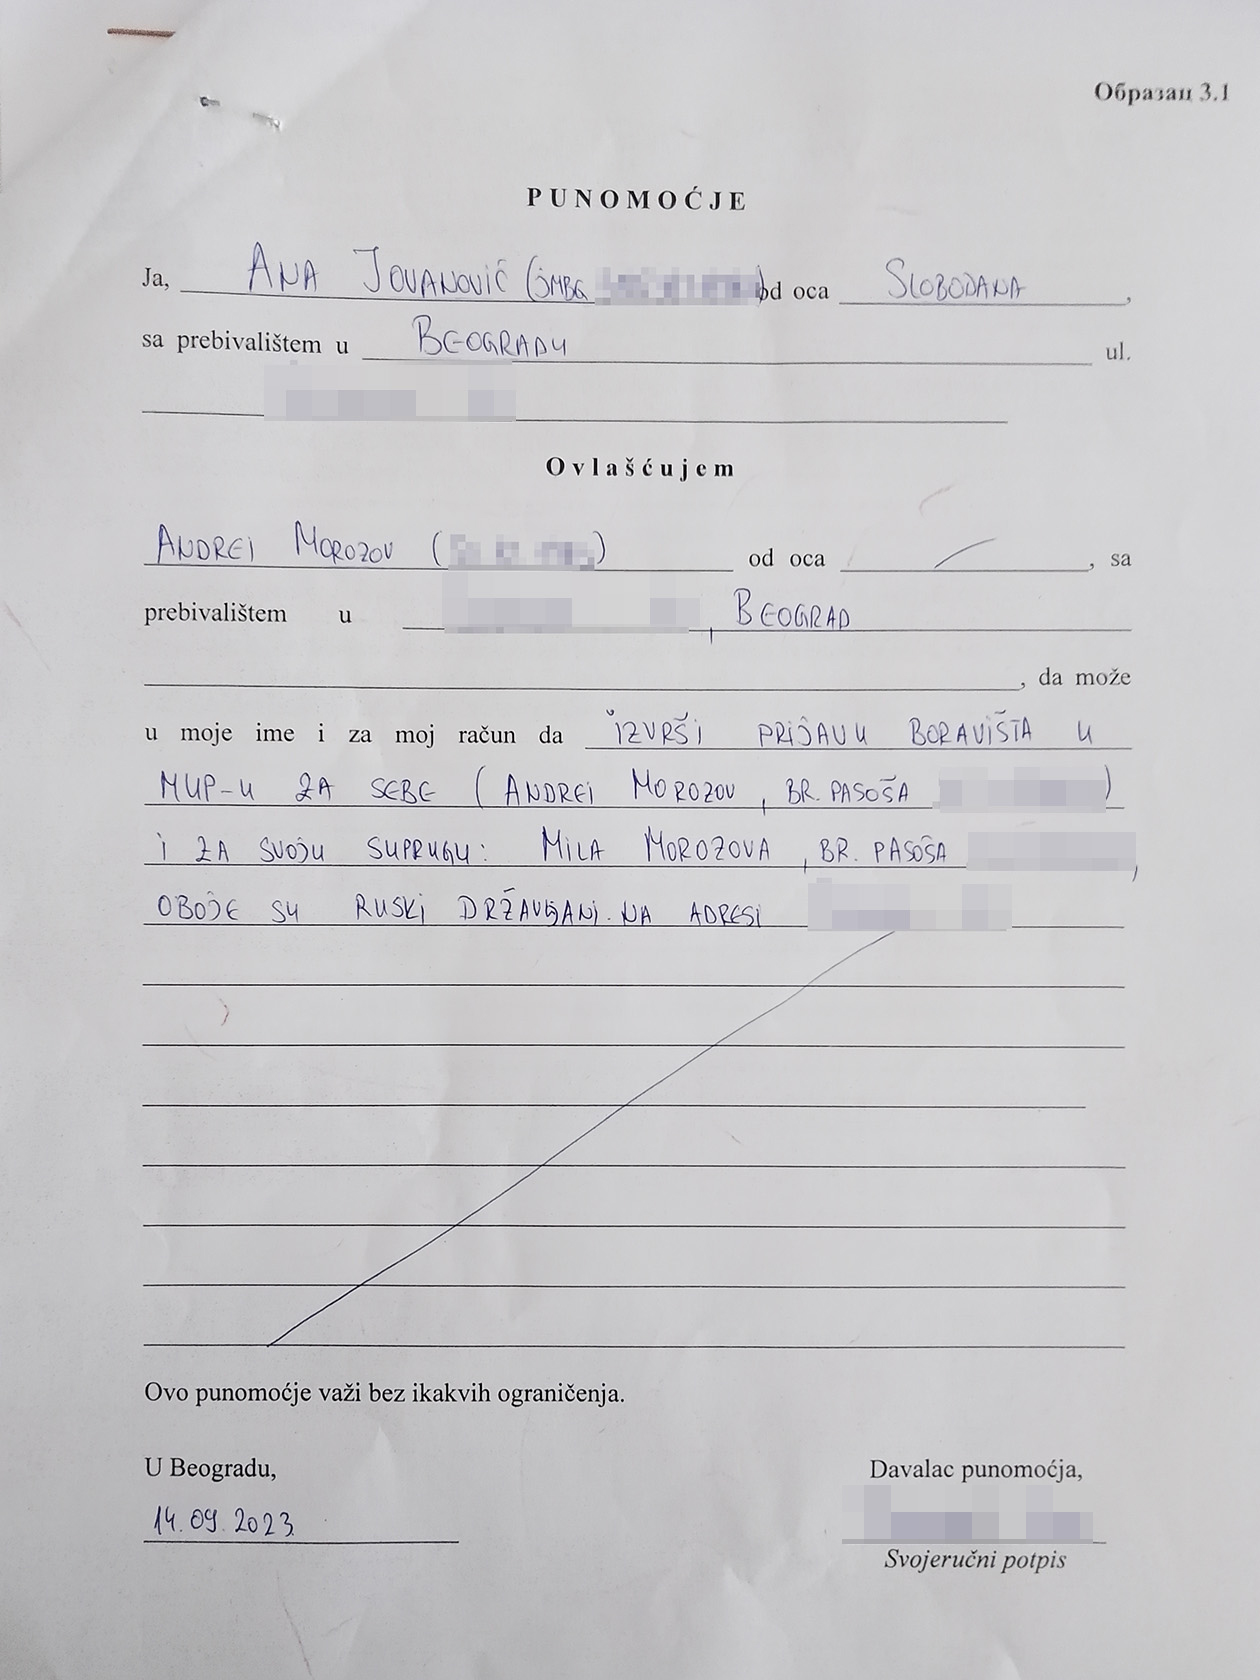 Образац 3.1
PUNOMOĆJE
Ja, ANA JOVANOVIĆ (JMBG od oca SLOBODANA,
sa prebivalištem u BEOGRADU ul.
Ovlašćujem
ANDREI MOROZOV ( ) od oca /, sa
prebivalištem u , BEOGRAD
, da može
u moje ime i za moj račun da IZVRŠI PRIJAVU BORAVIŠTA U
MUP-U ZA SEBE (ANDREI MOROZOV, BR. PASOŠA )
I ZA SVOJU SUPRUGU: MILA MOROZOVA, BR. PASOŠA ,
OBOJE SU RUSKI DRŽAVLJANI. NA ADRESI
Ovo punomoćje važi bez ikakvih ograničenja.
U Beogradu,
Davalac punomoćja,
14.09.2023
Svojeručni potpis